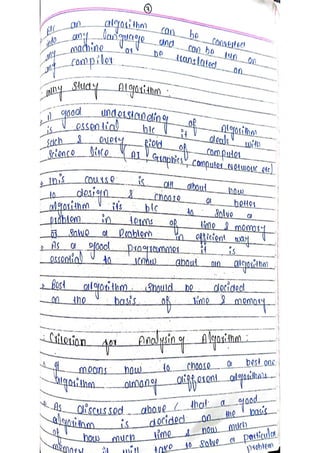 ③
an algorithm can be converted
into any language and can be run on
any machine or be translated on
any compiler
Why Study Algorithm :
A good understanding of Algorithm
is essential b/c it deals with
each & every field of computer
Science like (AI Graphics, computer network etc)
This course is all about how
to design & choose a better
algorithm its b/c to solve a
problem in terms of time & memory
solve a problem in efficient way
As a good programmer it is
essential to know about an algorithm
Best algorithm should be decided
on the basis of time & memory
Criterion for Analysing Algorithm :
It means how to choose a best one
algorithm among different algorithms
As discussed above / that a good
algorithm is decided on the basis
of how much time & how much
memory it will take to solve a particular
problem